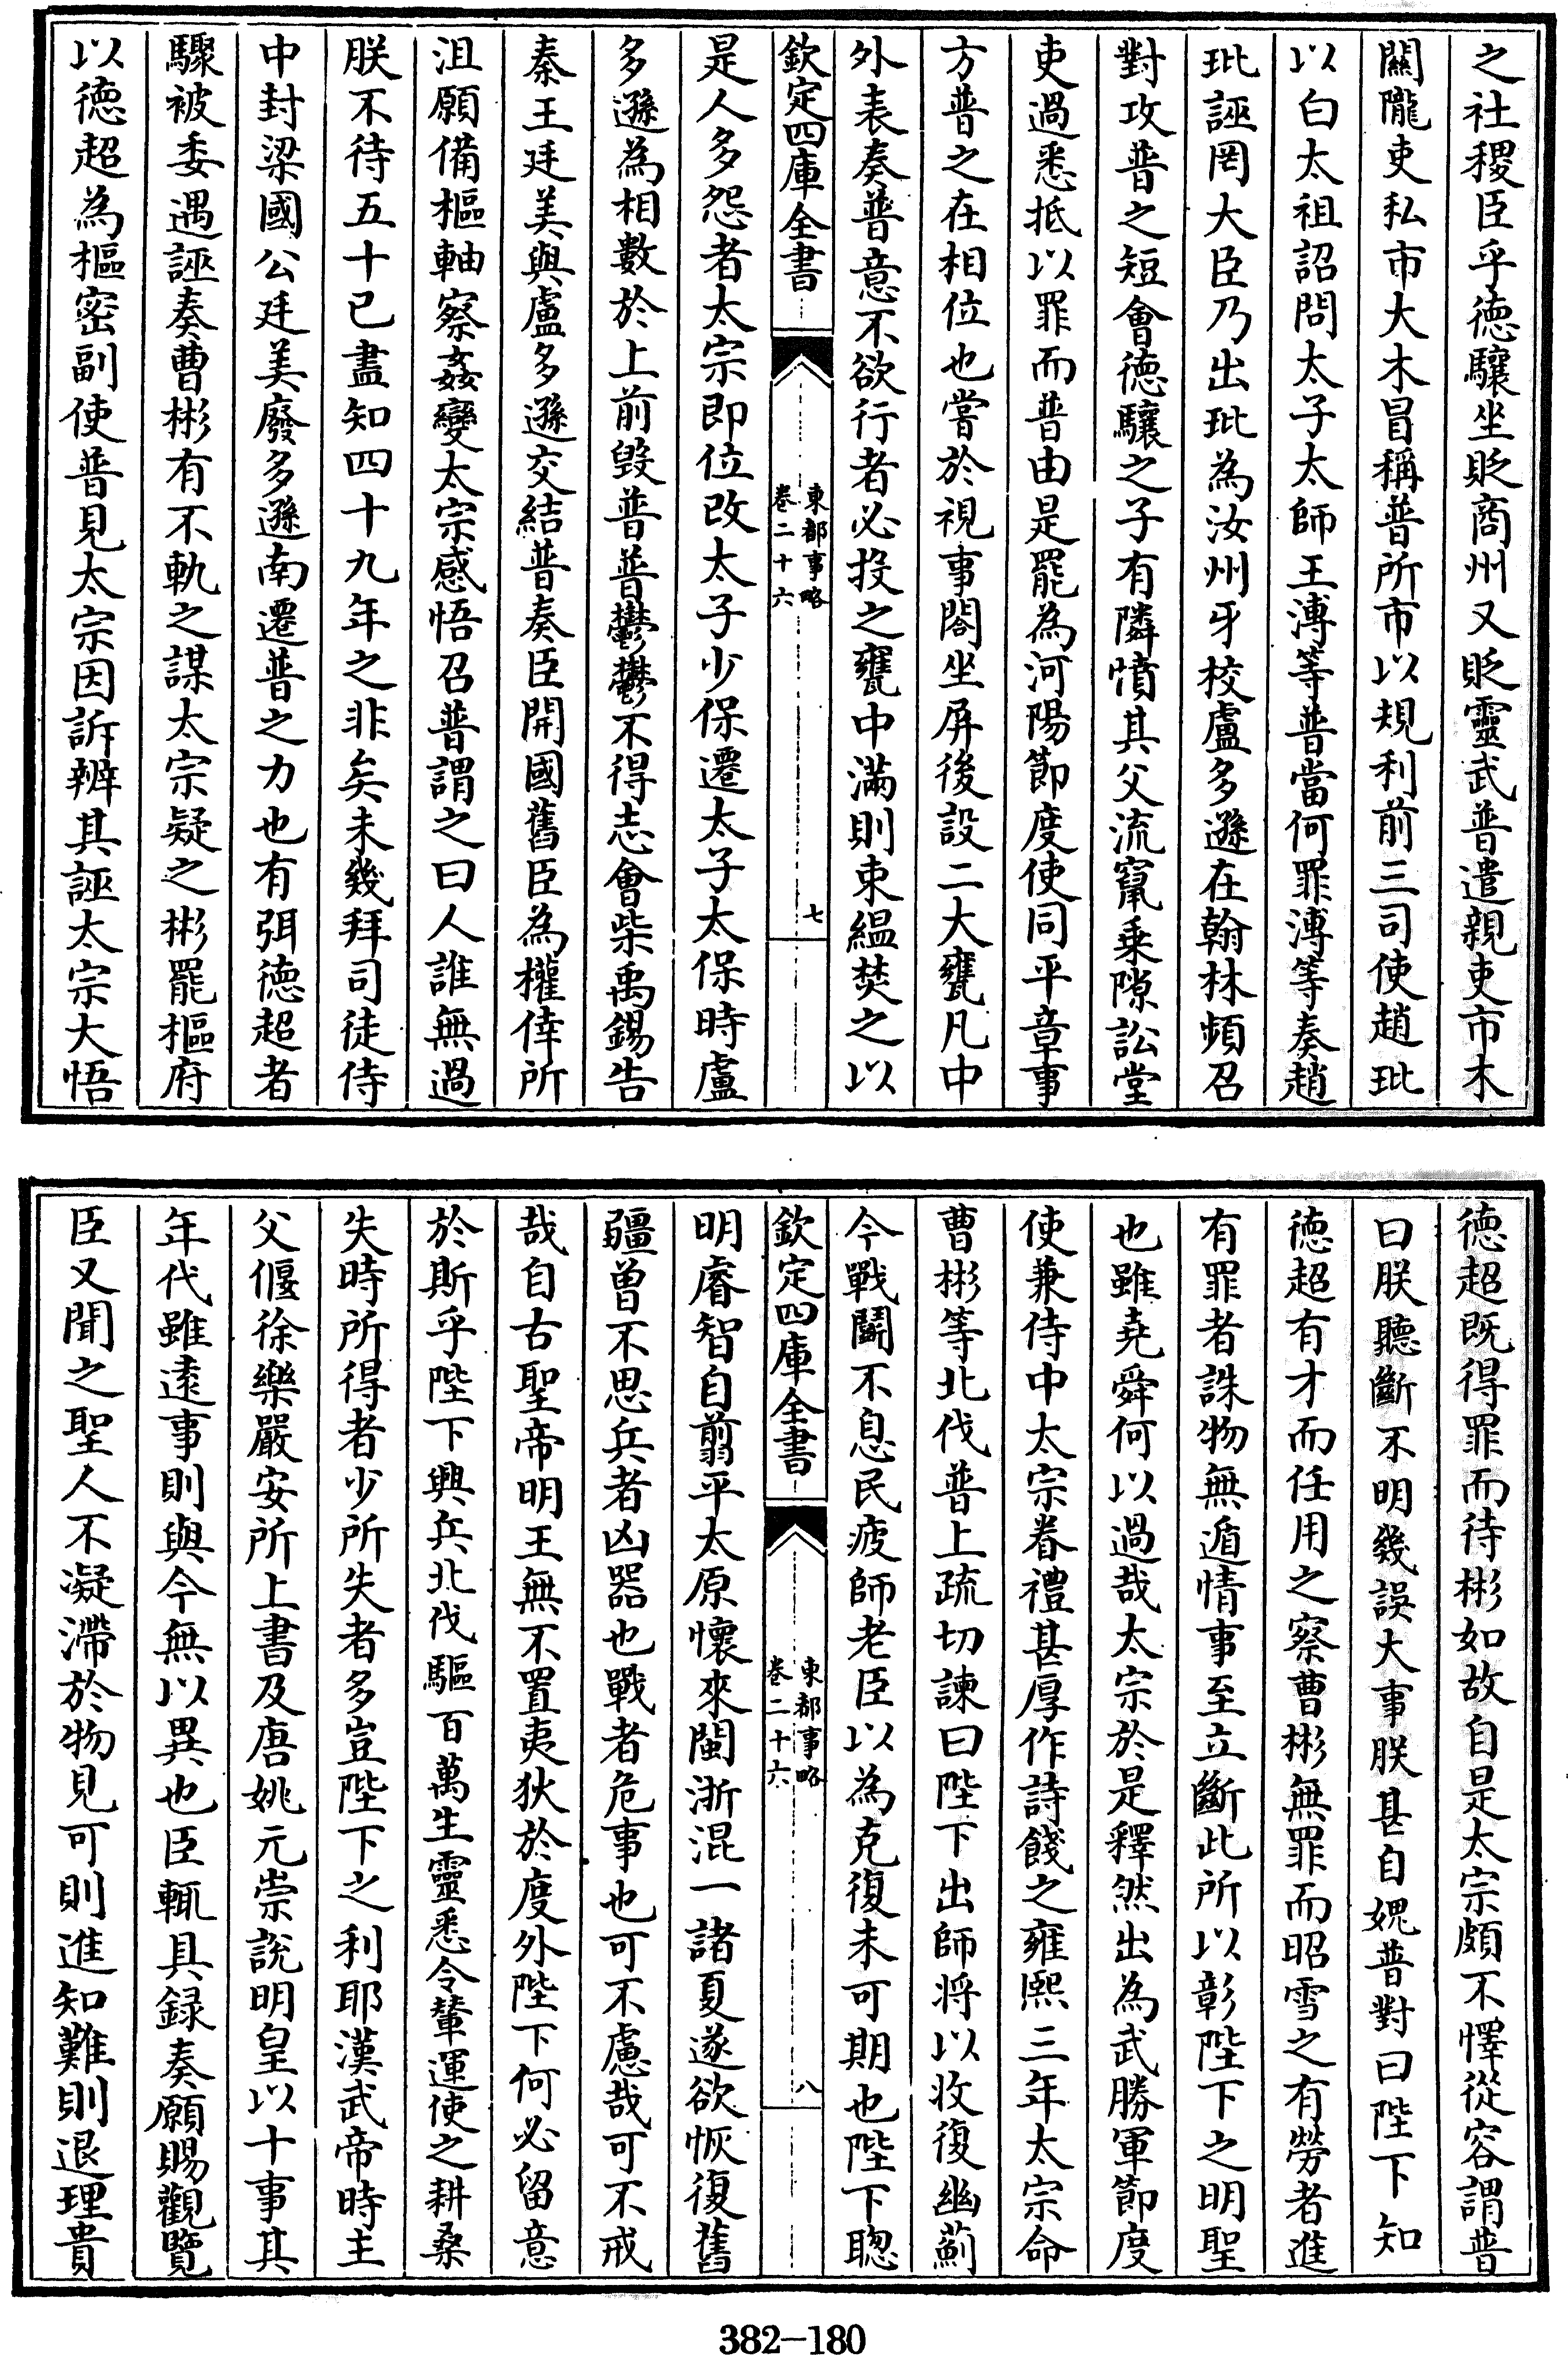 之社稷臣乎徳驤坐貶商州又貶靈武普遣親吏市木
關隴吏私市大木冒稱普所市以規利前三司使趙玭
以白太祖詔問太子太師王溥等普當何罪溥等奏趙
玭誣罔大臣乃出玭為汝州牙校盧多遜在翰林頻召
對攻普之短會徳驤之子有隣憤其父流竄乗隙訟堂
吏過悉抵以罪而普由是罷為河陽節度使同平章事
方普之在相位也嘗於視事閤坐屏後設二大甕凡中
外表奏普意不欲行者必投之甕中滿則束縕焚之以
欽定四庫全書
東都事略
卷二十六
七
是人多怨者太宗即位改太子少保遷太子太保時盧
多遜為相數於上前毀普普鬱鬱不得志會柴禹錫告
秦王廷美與盧多遜交結普奏臣開國舊臣為權倖所
沮願備樞軸察姦變太宗感悟召普謂之曰人誰無過
朕不待五十已盡知四十九年之非矣未幾拜司徒侍
中封梁國公廷美廢多遜南遷普之力也有弭徳超者
驟被委遇誣奏曹彬有不軌之謀太宗疑之彬罷樞府
以徳超為樞密副使普見太宗因訴辨其誣太宗大悟
徳超既得罪而待彬如故自是太宗頗不懌從容謂普
曰朕聽斷不明幾誤大事朕甚自媿普對曰陛下知
徳超有才而任用之察曹彬無罪而昭雪之有勞者進
有罪者誅物無遁情事至立斷此所以彰陛下之明聖
也雖堯舜何以過哉太宗於是釋然出為武勝軍節度
使兼侍中太宗眷禮甚厚作詩餞之雍熙三年太宗命
曹彬等北伐普上疏切諫曰陛下出師將以收復幽薊
今戰鬭不息民疲師老臣以為克復未可期也陛下聰
欽定四庫全書
東都事略
卷二十六
八
明睿智自翦平太原懷來閩浙混一諸夏遂欲恢復舊
疆曾不思兵者凶器也戰者危事也可不慮哉可不戒
哉自古聖帝明王無不置夷狄於度外陛下何必留意
於斯乎陛下興兵北伐驅百萬生靈悉令輦運使之耕桑
失時所得者少所失者多豈陛下之利耶漢武帝時主
父偃徐樂嚴安所上書及唐姚元崇說明皇以十事其
年代雖逺事則與今無以異也臣輒具録奏願賜觀覽
臣又聞之聖人不凝滯於物見可則進知難則退理貴
382—180